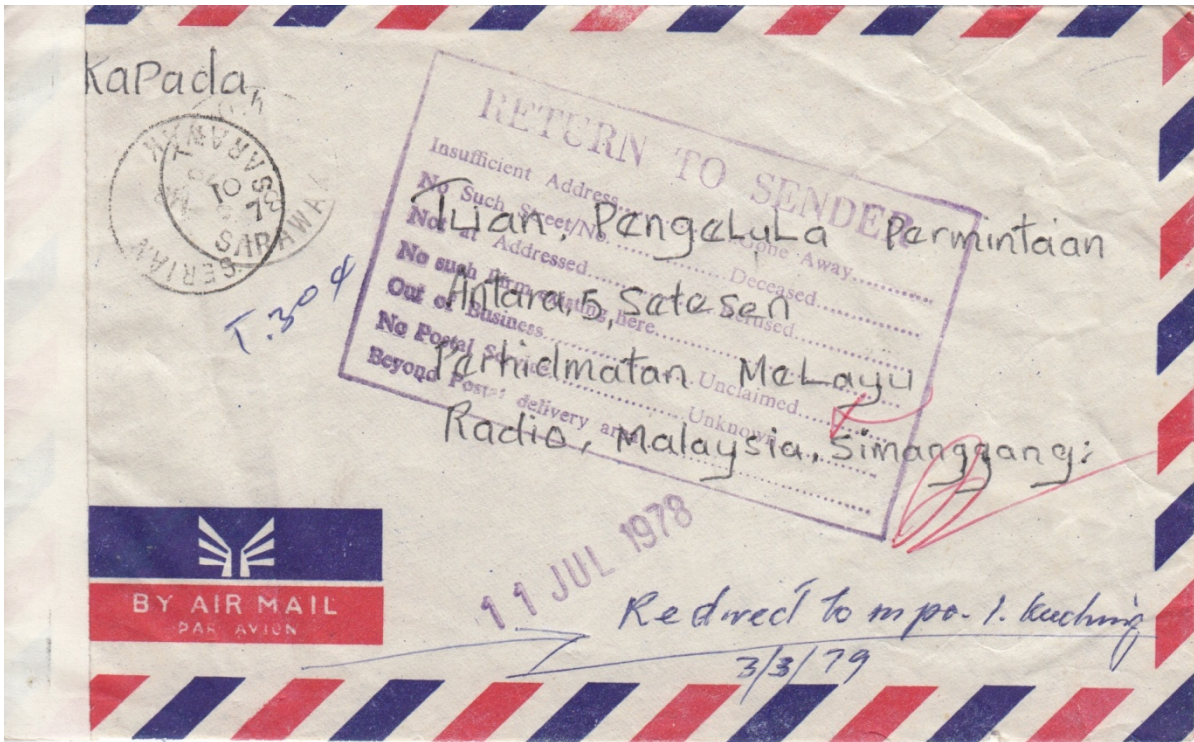 KaPada,
SERIAN
SARAWAK
SARAWAK
RETURN TO SENDER
Insufficient Address..........Gone Away..........
No Such Street/No...........Deceased..........
Not at Addressed..........Refused..........
No such firm existing here..........Unclaimed..........
Out of Business..........Unknown..........
No Postal Service..........
Beyond Postal delivery area..........
Tuan, PengeLuLa Permintaan
Antara, 5, Satesen
Perhidmatan MeLayu
Radio, Malaysia, Simanggang:
T.304
11 JUL 1978
BY AIR MAIL
PAR AVION
Redirect to mpo. 1. Kuching
3/3/79